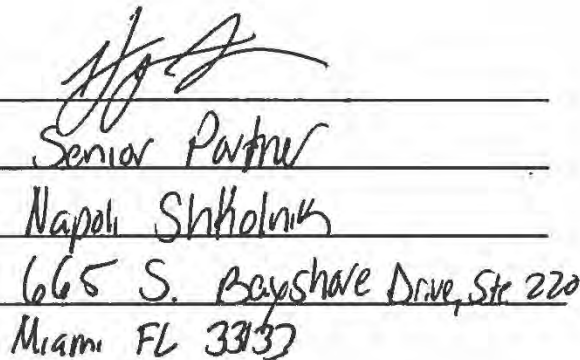 Senior Partner
Napoli Shkolnik
665 S. Bayshore Drive, Ste 220
Miami FL 33133